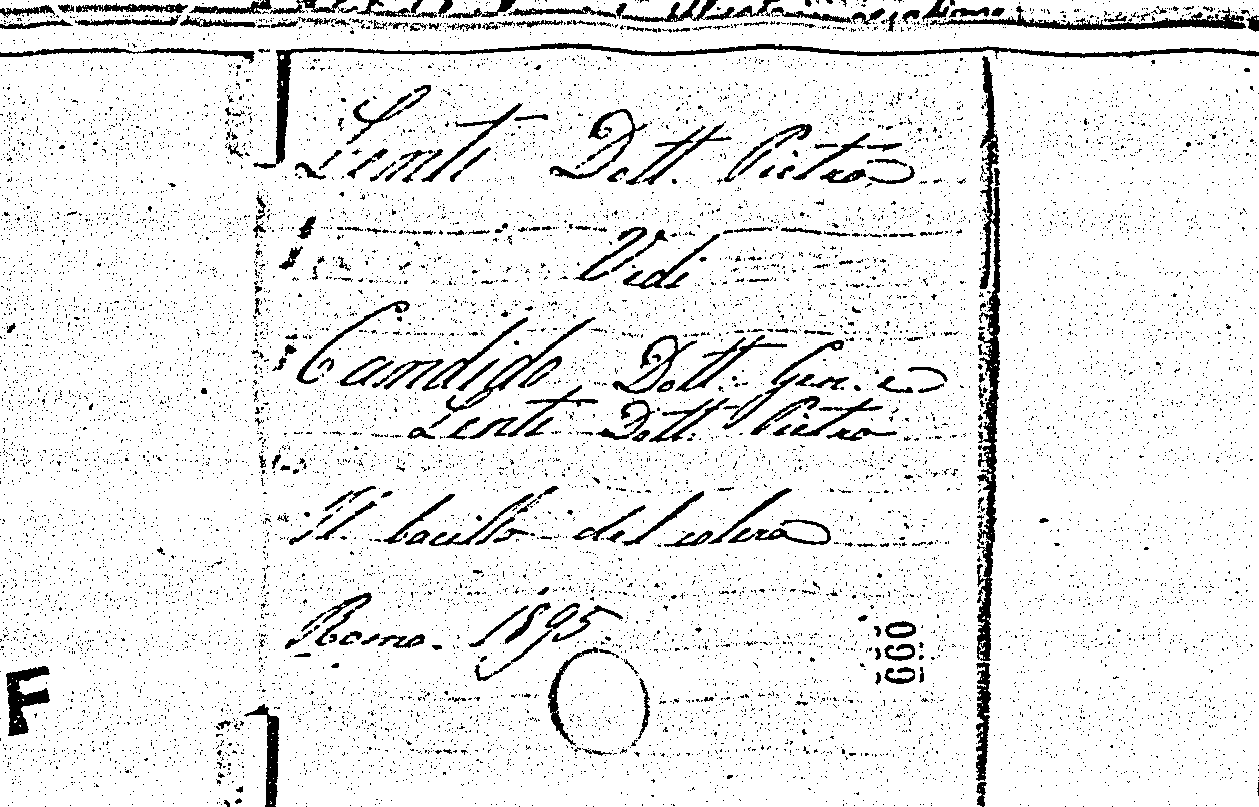 Lenti Dott. Pietro
Vedi
Candido Dott. Gen. e
Lenti Dott. Pietro
Il bacillo del colera
Roma. 1895.
660
F